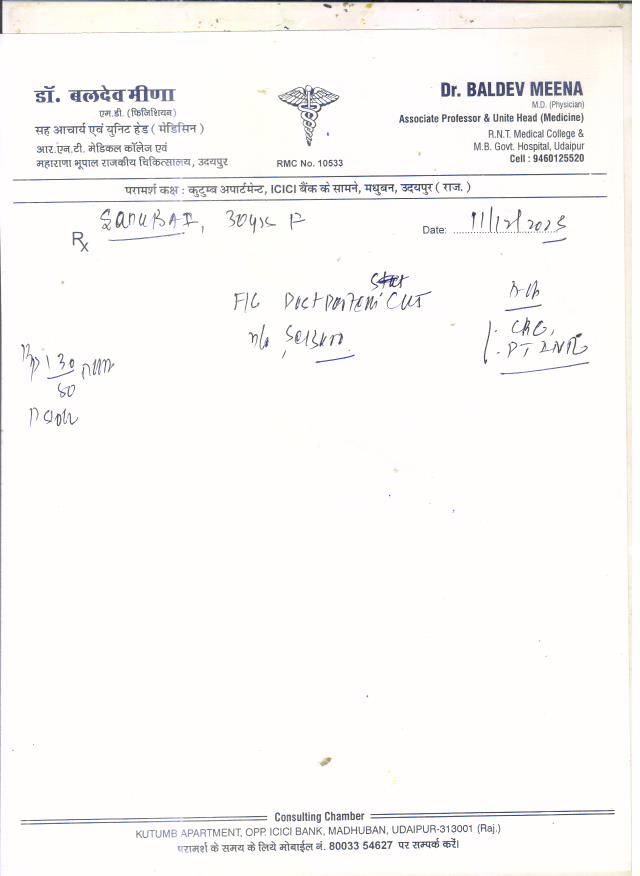 डॉ. बलदेव मीणा
एम.डी. (फिजिशियन)
सह आचार्य एवं युनिट हेड ( मेडिसिन )
आर.एन.टी. मेडिकल कॉलेज एवं
महाराणा भूपाल राजकीय चिकित्सालय, उदयपुर
RMC No. 10533
Dr. BALDEV MEENA
M.D. (Physician)
Associate Professor & Unite Head (Medicine)
R.N.T. Medical College &
M.B. Govt. Hospital, Udaipur
Cell : 9460125520
परामर्श कक्ष : कुटुम्ब अपार्टमेन्ट, ICICI बैंक के सामने, मधुबन, उदयपुर ( राज. )
Rx
30yrs F
Date: 11/12/2023
Postpartem CVT
h/o
CBC,
PT INR
BP 130
80
Consulting Chamber
KUTUMB APARTMENT, OPP. ICICI BANK, MADHUBAN, UDAIPUR-313001 (Raj.)
परामर्श के समय के लिये मोबाईल नं. 80033 54627 पर सम्पर्क करें।